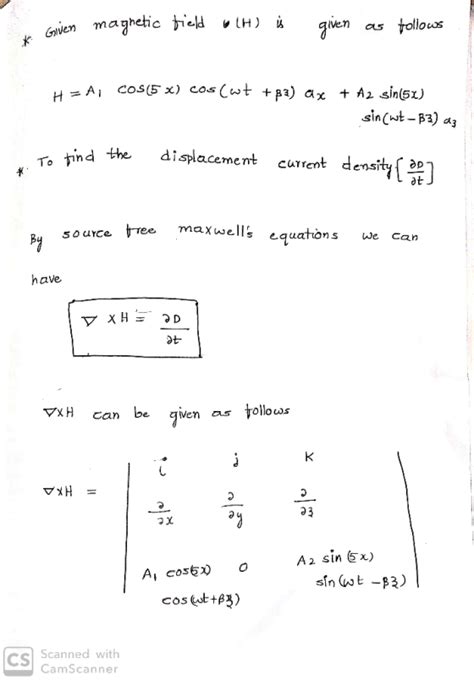 * Given magnetic field (H) is given as follows
H = A1 cos(5x) cos(wt + β3) ax + A2 sin(5x)
sin(wt - β3) a3
* To find the displacement current density {∂D/∂t}
By source free maxwell's equations we can
have
∇ X H = ∂D/∂t
∇XH can be given as follows
∇XH =
i j k
∂/∂x ∂/∂y ∂/∂3
A1 cos(5x) 0 A2 sin(5x)
cos(wt+β3) sin(wt - β3)
CS Scanned with
CamScanner